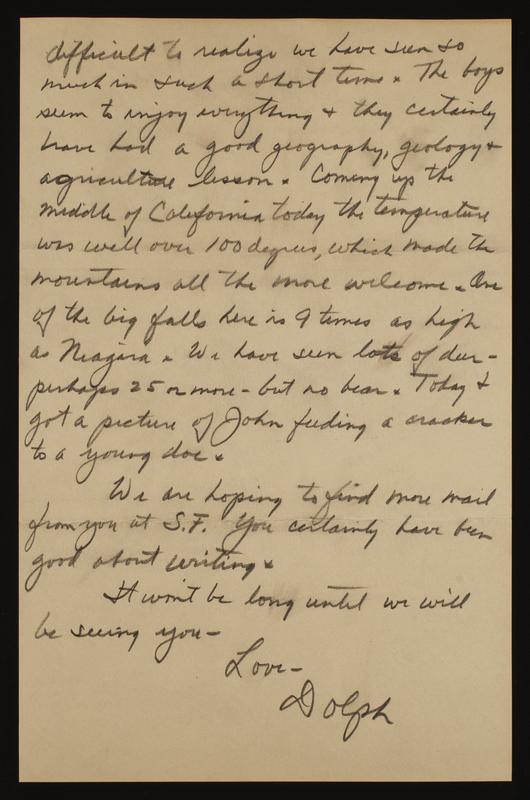 difficult to realize we have seen so
much in such a short time. The boys
seem to enjoy everything & they certainly
have had a good geography, geology &
agriculture lesson. Coming up the
middle of California today the temperature
was well over 100 degrees, which made the
mountains all the more welcome. One
of the big falls here is 9 times as high
as Niagara. We have seen lots of deer -
perhaps 25 or more - but no bear. Today I
got a picture of John feeding a cracker
to a young doe.
We are hoping to find more mail
from you at S.F. You certainly have been
good about writing.
It won't be long until we will
be seeing you -
Love -
Dolph